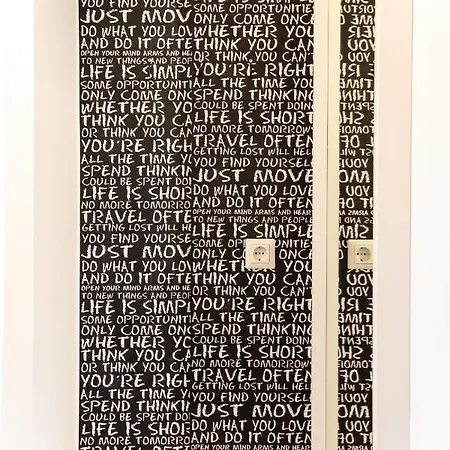 YOU FIND YOURSEL
JUST MOV
DO WHAT YOU LOV
AND DO IT OFTE
OPEN YOUR MIND ARMS AND HEAR
TO NEW THINGS AND PEOP
LIFE IS SIMPL
SOME OPPORTUNITIES
ONLY COME ONC
WHETHER YO
THINK YOU CA
OR THINK YOU CAN
YOU'RE RIGH
ALL THE TIME YO
SPEND THINKIN
COULD BE SPENT DOI
LIFE IS SHOR
NO MORE TOMORRO
TRAVEL OFTE
GETTING LOST WILL HE
YOU FIND YOURSE
JUST MOV
DO WHAT YOU LOV
AND DO IT OFTE
OPEN YOUR MIND ARMS AND HEA
TO NEW THINGS AND PEOP
LIFE IS SIMPL
SOME OPPORTUNITIE
ONLY COME ONC
WHETHER YO
THINK YOU CA
OR THINK YOU CAN
YOU'RE RIGH
ALL THE TIME YO
SPEND THINKIN
COULD BE SPENT DOI
LIFE IS SHOR
NO MORE TOMORRO
TRAVEL OFTE
SOME OPPORTUNITIES
ONLY COME ONCE
WHETHER YOU
THINK YOU CAN
OR THINK YOU CAN'T
YOU'RE RIGHT
ALL THE TIME YOU
SPEND THINKING
COULD BE SPENT DOING
LIFE IS SHORT
NO MORE TOMORROW
TRAVEL OFTEN
GETTING LOST WILL HEL
YOU FIND YOURSELF
JUST MOVE
DO WHAT YOU LOVE
AND DO IT OFTEN
OPEN YOUR MIND ARMS AND HEART
TO NEW THINGS AND PEOPLE
LIFE IS SIMPL
SOME OPPORTUNITIES
ONLY COME
WHETHER
THINK YOU
OR THINK YOU CAN'T
YOU'RE RIGHT
ALL THE TIME YOU
SPEND THINKING
COULD BE SPENT DOING
LIFE IS SHORT
NO MORE TOMORROW
TRAVEL OFTEN
GETTING LOST WILL HELP
YOU FIND YOURSELF
JUST MOVE
DO WHAT YOU LOVE
AND DO IT OFTEN